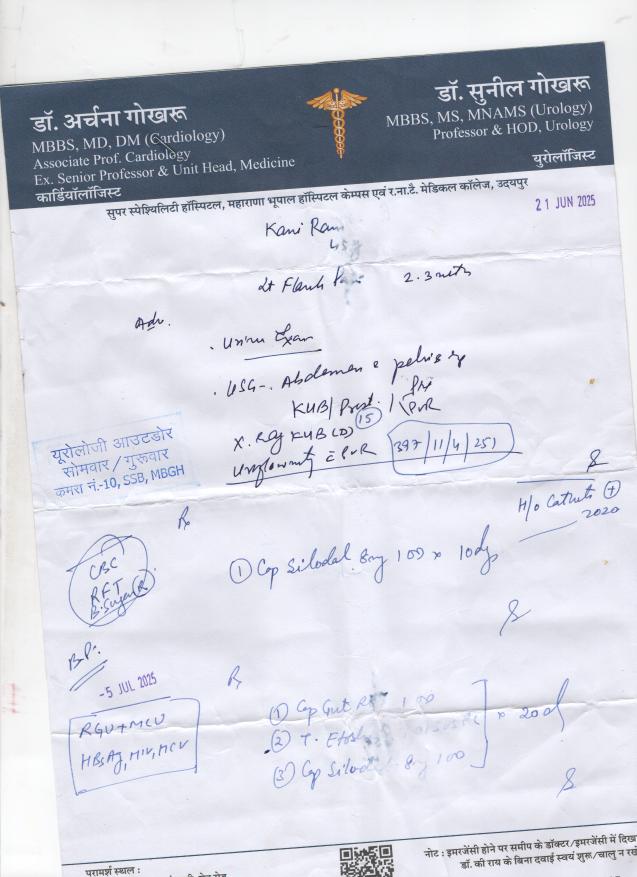 डॉ. अर्चना गोखरू
MBBS, MD, DM (Cardiology)
Associate Prof. Cardiology
Ex. Senior Professor & Unit Head, Medicine
कार्डियॉलॉजिस्ट
डॉ. सुनील गोखरू
MBBS, MS, MNAMS (Urology)
Professor & HOD, Urology
युरोलॉजिस्ट
सुपर स्पेश्यिलिटी हॉस्पिटल, महाराणा भूपाल हॉस्पिटल केम्पस एवं र.ना.टै. मेडिकल कॉलेज, उदयपुर
21 JUN 2025
Kani Ram
45y
Lt Flank Pain
Adv.
. Urine Exam
. USG-. Abdomen & pelvis
KUB/Prost. / Pre
PVR
X. Ray KUB (D) 15
Uroflowmetry c PVR 397/11/4/251
यूरोलोजी आउटडोर
सोमवार / गुरूवार
कमरा नं.-10, SSB, MBGH
H/o Catheter +
2020
Rx
CBC
RFT
B.Sugar(R)
① Cap Silodal 8mg 100 x 10dys
B.P.
-5 JUL 2025
Rx
RGU+MCU
HBsAg, HIV, HCV
① Cap Gut 100
② T.
③ Cap Silodal 8mg 100
x 20d
परामर्श स्थल :
नोट : इमरजेंसी होने पर समीप के डॉक्टर/इमरजेंसी में
डॉ. की राय के बिना दवाई स्वयं शुरू/चालू न